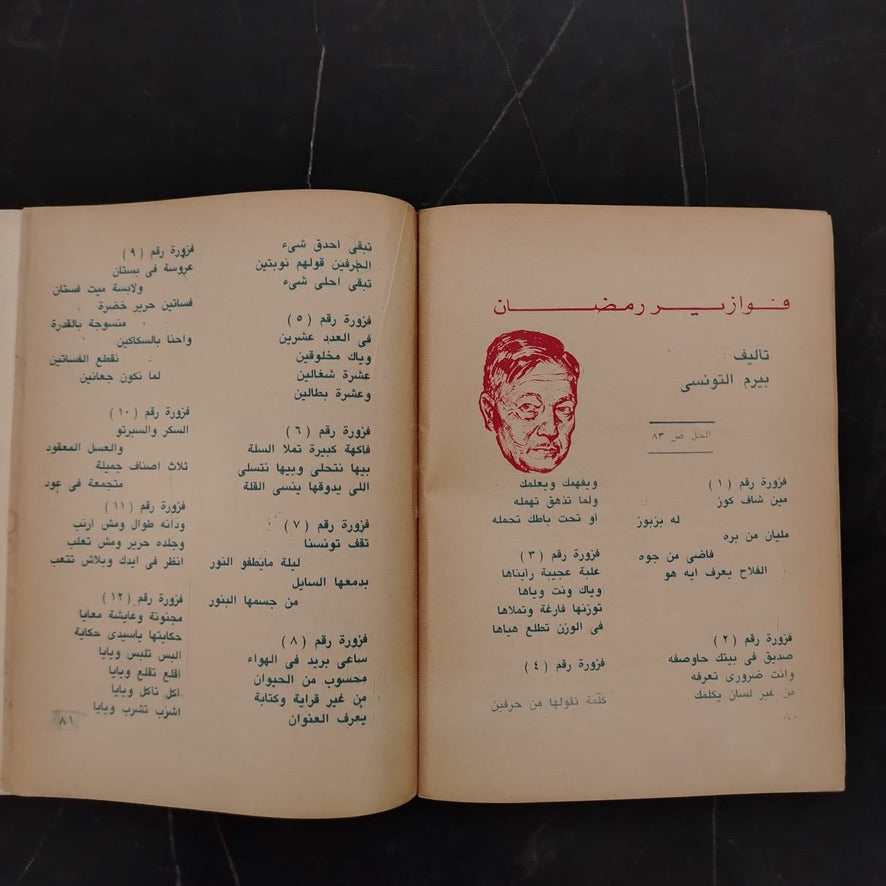 فوازير رمضان
تاليف :
بيرم التونسى
الحل ص ٨٣
فزورة رقم ( ١ )
مين شاف كوز
له بزبوز
مليان من بره
فاضى من جوه
الفلاح يعرف ايه هو
فزورة رقم ( ٢ )
صديق فى بيتك حاوصفه
وانت ضرورى تعرفه
من غير لسان يكلمك
ويفهمك ويعلمك
ولما تذهق تهمله
او تحت باطك تحمله
فزورة رقم ( ٣ )
علبة عجيبة رابناها
وياك ونت وياها
توزنها فارغة وتملاها
فى الوزن تطلع هياها
فزورة رقم ( ٤ )
كلمة تقولها من حرفين
٨٠
تبقى أحدق شىء
الحرفين قولهم نوبتين
تبقى احلى شىء
فزورة رقم ( ٥ )
فى العدد عشرين
وياك مخلوقين
عشرة شغالين
وعشرة بطالين
فزورة رقم ( ٦ )
فاكهة كبيرة تملا السلة
بيها نتحلى وبيها نتسلى
اللى يدوقها ينسى القلة
فزورة رقم ( ٧ )
تقف تونسنا
ليلة مايطفو النور
بدمعها السايل
من جسمها البنور
فزورة رقم ( ٨ )
ساعى بريد فى الهواء
محسوب من الحيوان
من غير قراية وكتابة
يعرف العنوان
فزورة رقم ( ٩ )
عروسة فى بستان
ولابسة ميت فستان
فساتين حرير خضرة
منسوجة بالقدرة
واحنا بالسكاكين
نقطع الفساتين
لما نكون جعانين
فزورة رقم ( ١٠ )
السكر والسبرتو
والعسل المعقود
ثلاث اصناف جميلة
متجمعة فى عود
فزورة رقم ( ١١ )
ودانه طوال ومش أرنب
وجلده حرير ومش تعلب
انظر فى ايدك وبلاش تتعب
فزورة رقم ( ١٢ )
مجنونة وعايشة معايا
حكايتها ياسيدى حكاية
البس تلبس ويايا
اقلع تقلع ويايا
آكل تاكل ويايا
اشرب تشرب ويايا
٨١